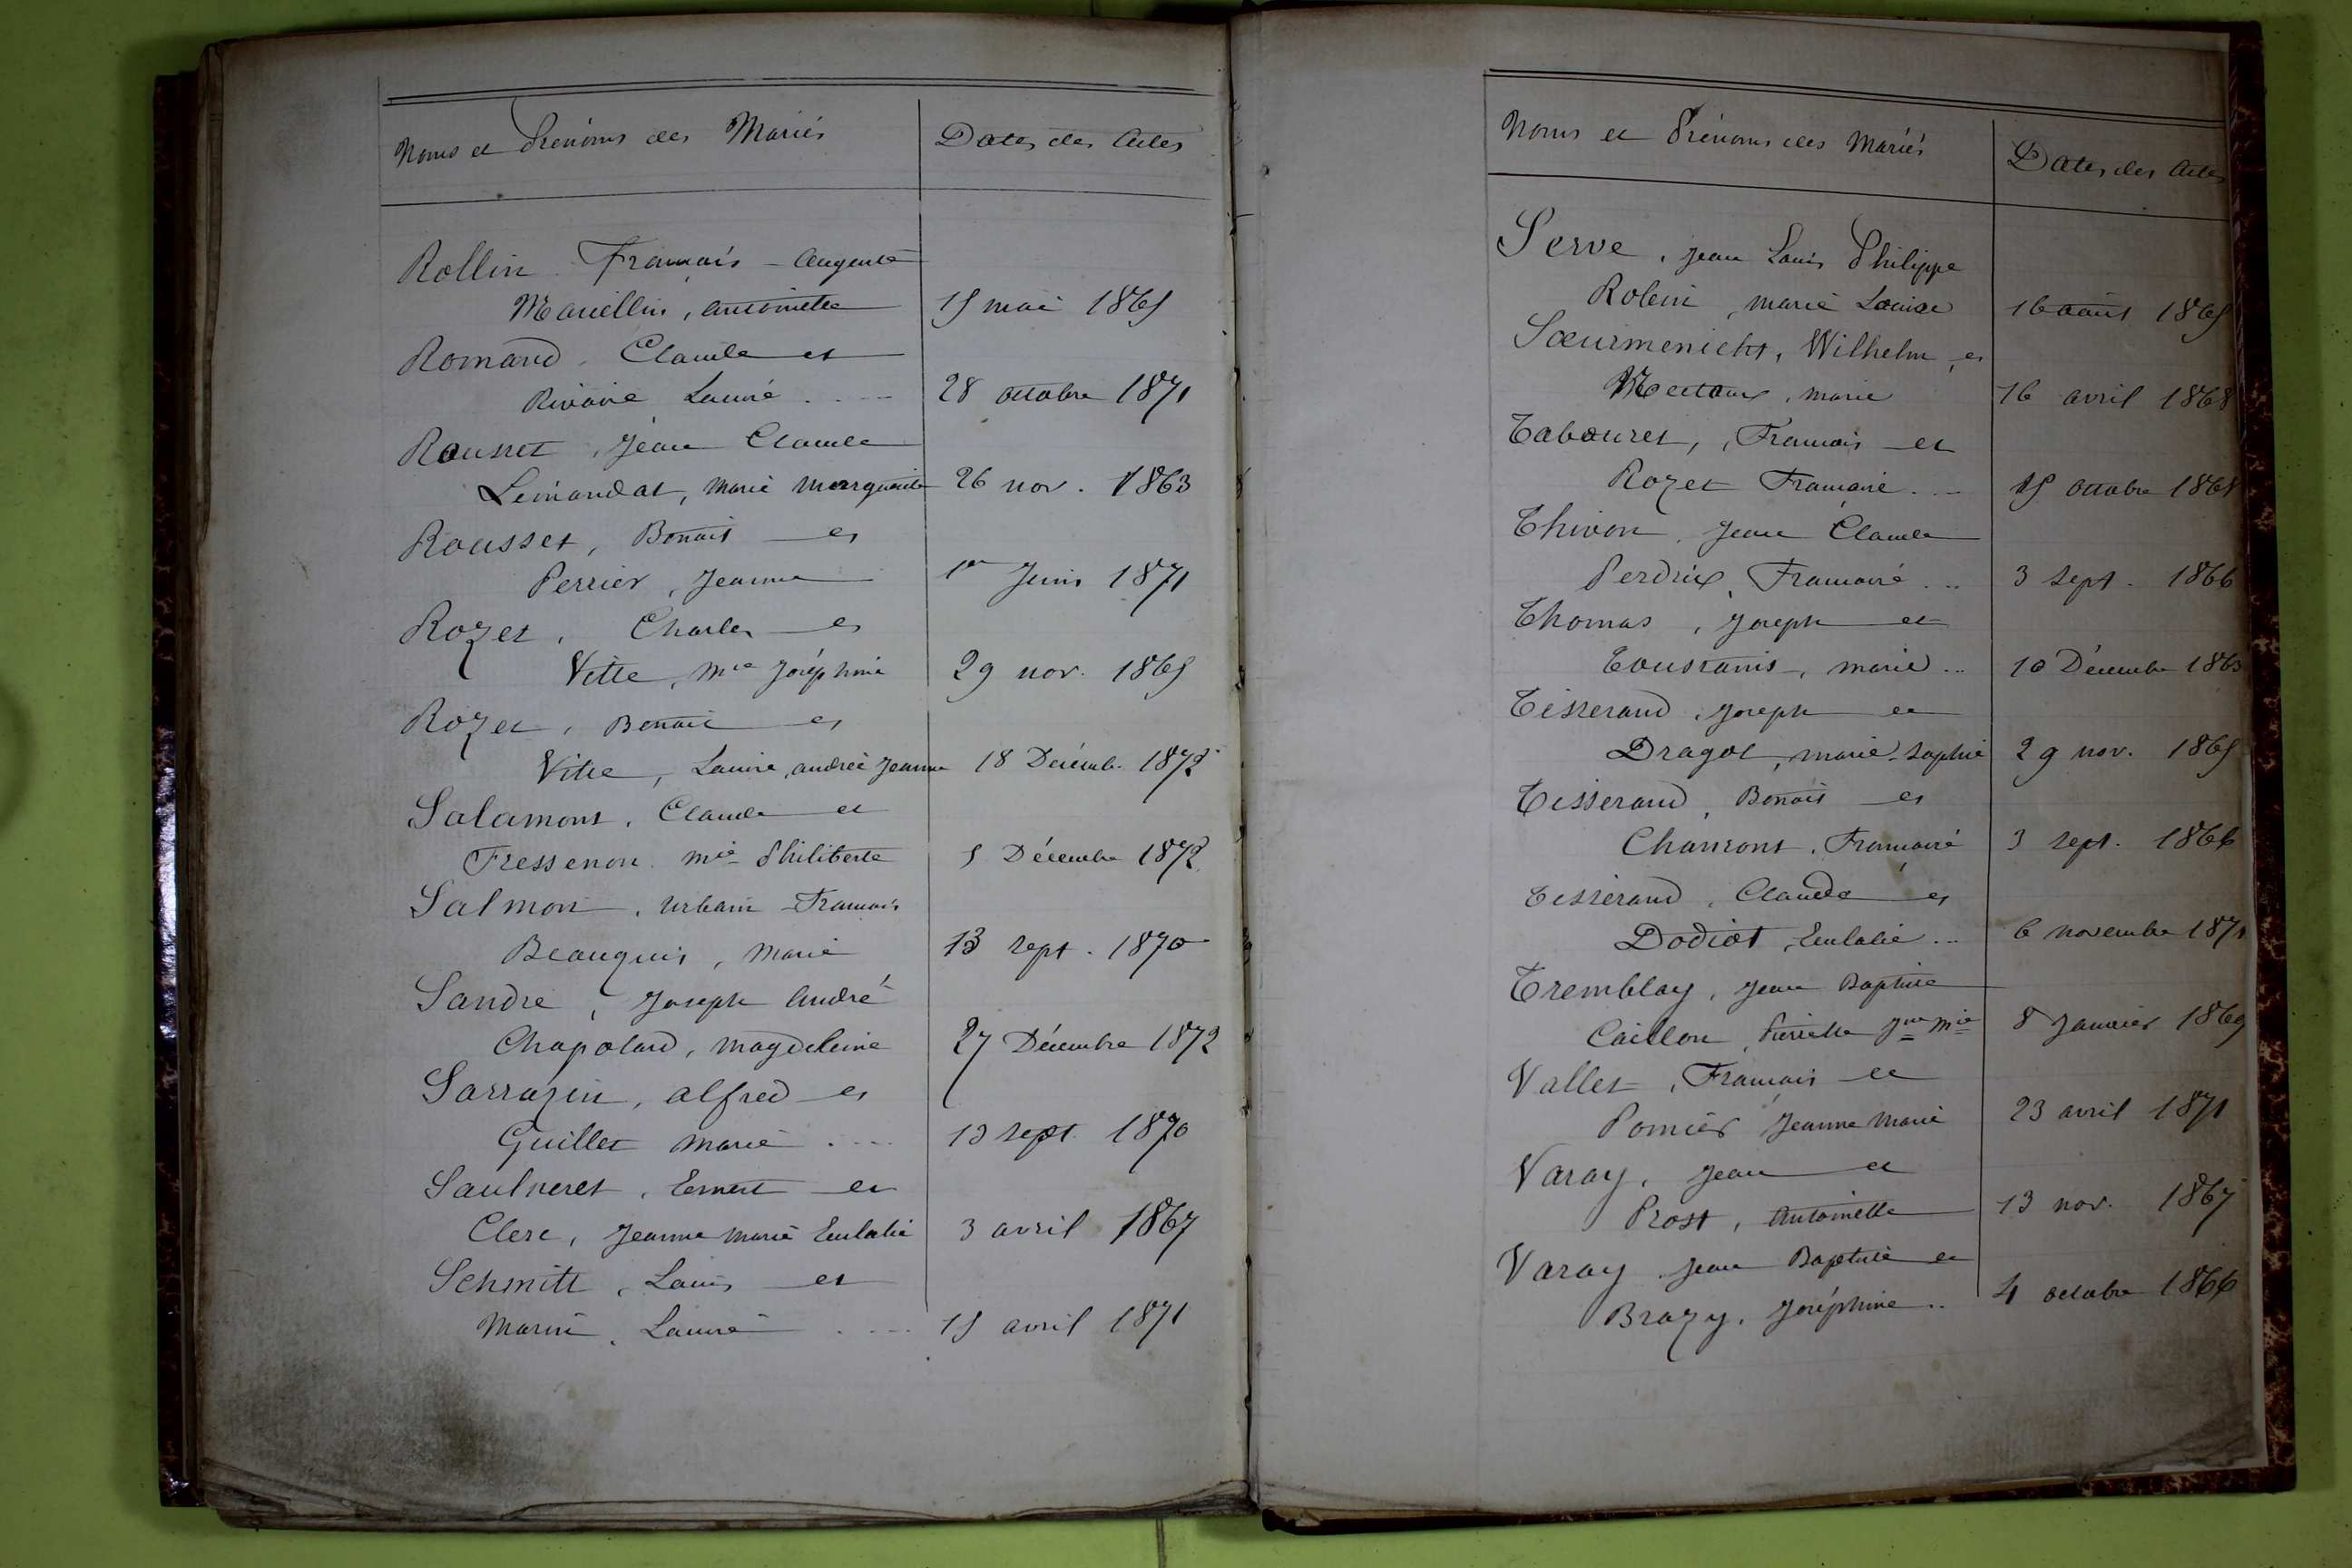 Noms et Prénoms des Mariés
Dates des Actes
Rollin François - Auguste
Marcellin, Antoinette 15 mai 1865
Romand, Claude et
Rivoire Laurie .... 28 octobre 1871
Rousset, Jean Claude
Lémandat, Marie Marguerite 26 nov. 1863
Rousset, Benoit et
Perrier, Jeanne 1er Juin 1871
Rozet, Charles et
Vitte, Mie Joséphine 29 nov. 1865
Rozet, Benoit et
Vitte, Laurie, andrée Jeanne 18 Décemb. 1872
Salamont, Claude et
Fressenon Mie Philiberte 5 Décembre 1872
Salmon, Urbain François
Beauquis, Marie 13 sept. 1870
Sandre, Joseph André
Chapolard, Magdeleine 27 Décembre 1872
Sarrazin, Alfred et
Guillet Marie .... 13 sept. 1870
Saulneret, Ernest et
Clerc, Jeanne Marie Eulalie 3 avril 1867
Schmitt, Louis et
Marin, Laurie .... 15 avril 1871
Noms et Prénoms des Mariés
Dates des Actes
Serve, Jean Louis Philippe
Robin, Marie Louise 16 août 1865
Sœurmenicht, Wilhelm et
Marie 16 avril 1868
Tabouret, François et
Rozet Françoise ... octobre
Thivon, Jean Claude
Perdrix, Françoise ... 3 sept. 1866
Thomas, Joseph et
marie ... 10 Décembre 1863
Tisserand, Joseph et
Dragot, Marie-Sophie 29 nov. 1865
Tisserand, Benoit et
Chanront, Françoise 3 sept. 1866
Tisserand, Claude et
Dodiot, Eulalie ... 6 novembre 1871
Tremblay, Jean Baptiste
Caillon, Pierrette Jne Mie 8 Janvier 1869
Vallet, François et
Pomier Jeanne Marie 23 avril 1871
Varay, Jean et
Prost, Antoinette 13 nov. 1867
Varay Jean Baptiste et
Brazy, Joséphine .. 4 octobre 1866